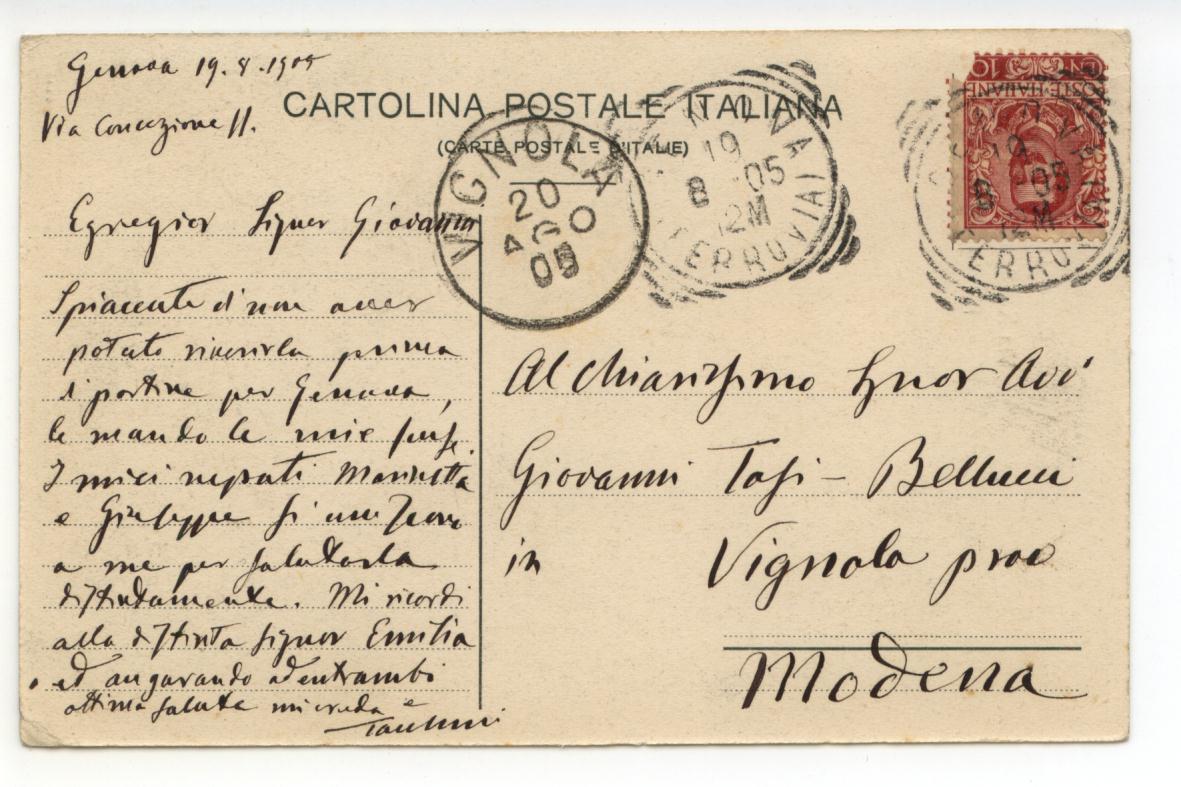 Genova 19.8.1905
Via Concezione 11.
CARTOLINA POSTALE ITALIANA
(CARTE POSTALE D'ITALIE)
VIGNOLA
20
AGO
05
19
8 05
12M
FERROVIA
19
8 05
12M
FERROVIA
POSTE ITALIANE
CEN. 10
Egregior Signor Giovanni
Spiacente di non aver
potuto riverirla prima
di partire per Genova,
le mando le mie scuse.
I miei nepoti Marietta
e Giuseppe si uniscono
a me per salutarla
distintamente. Mi ricordi
alla distinta signora Emilia
ed augurando ad entrambi
ottima salute mi creda
Al Chiarissimo Signor Avv
Giovanni Tosi - Bellucci
in Vignola prov
Modena